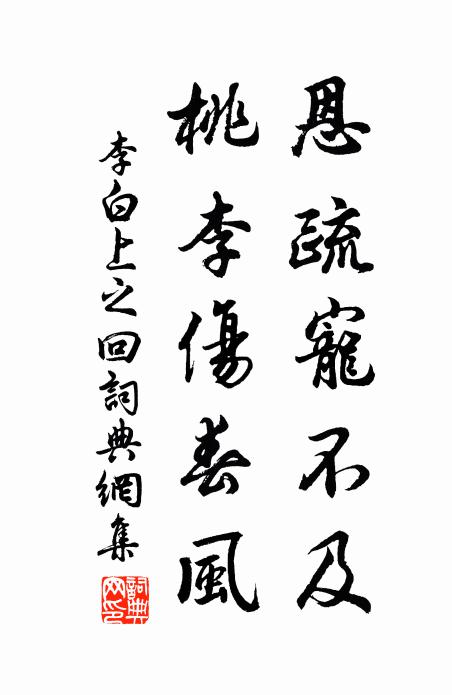 恩疏寵不及
桃李傷春風
李白上之回詞典網集
詞典網印